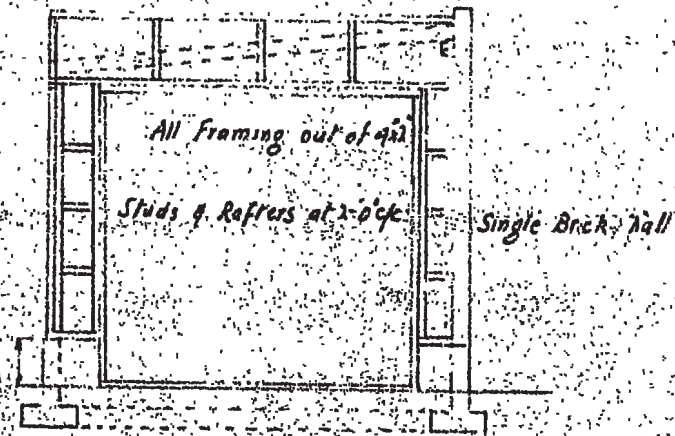 All Framing out of 4"x2"
Studs & Rafters at 2'-0" c/c
Single Brick Wall